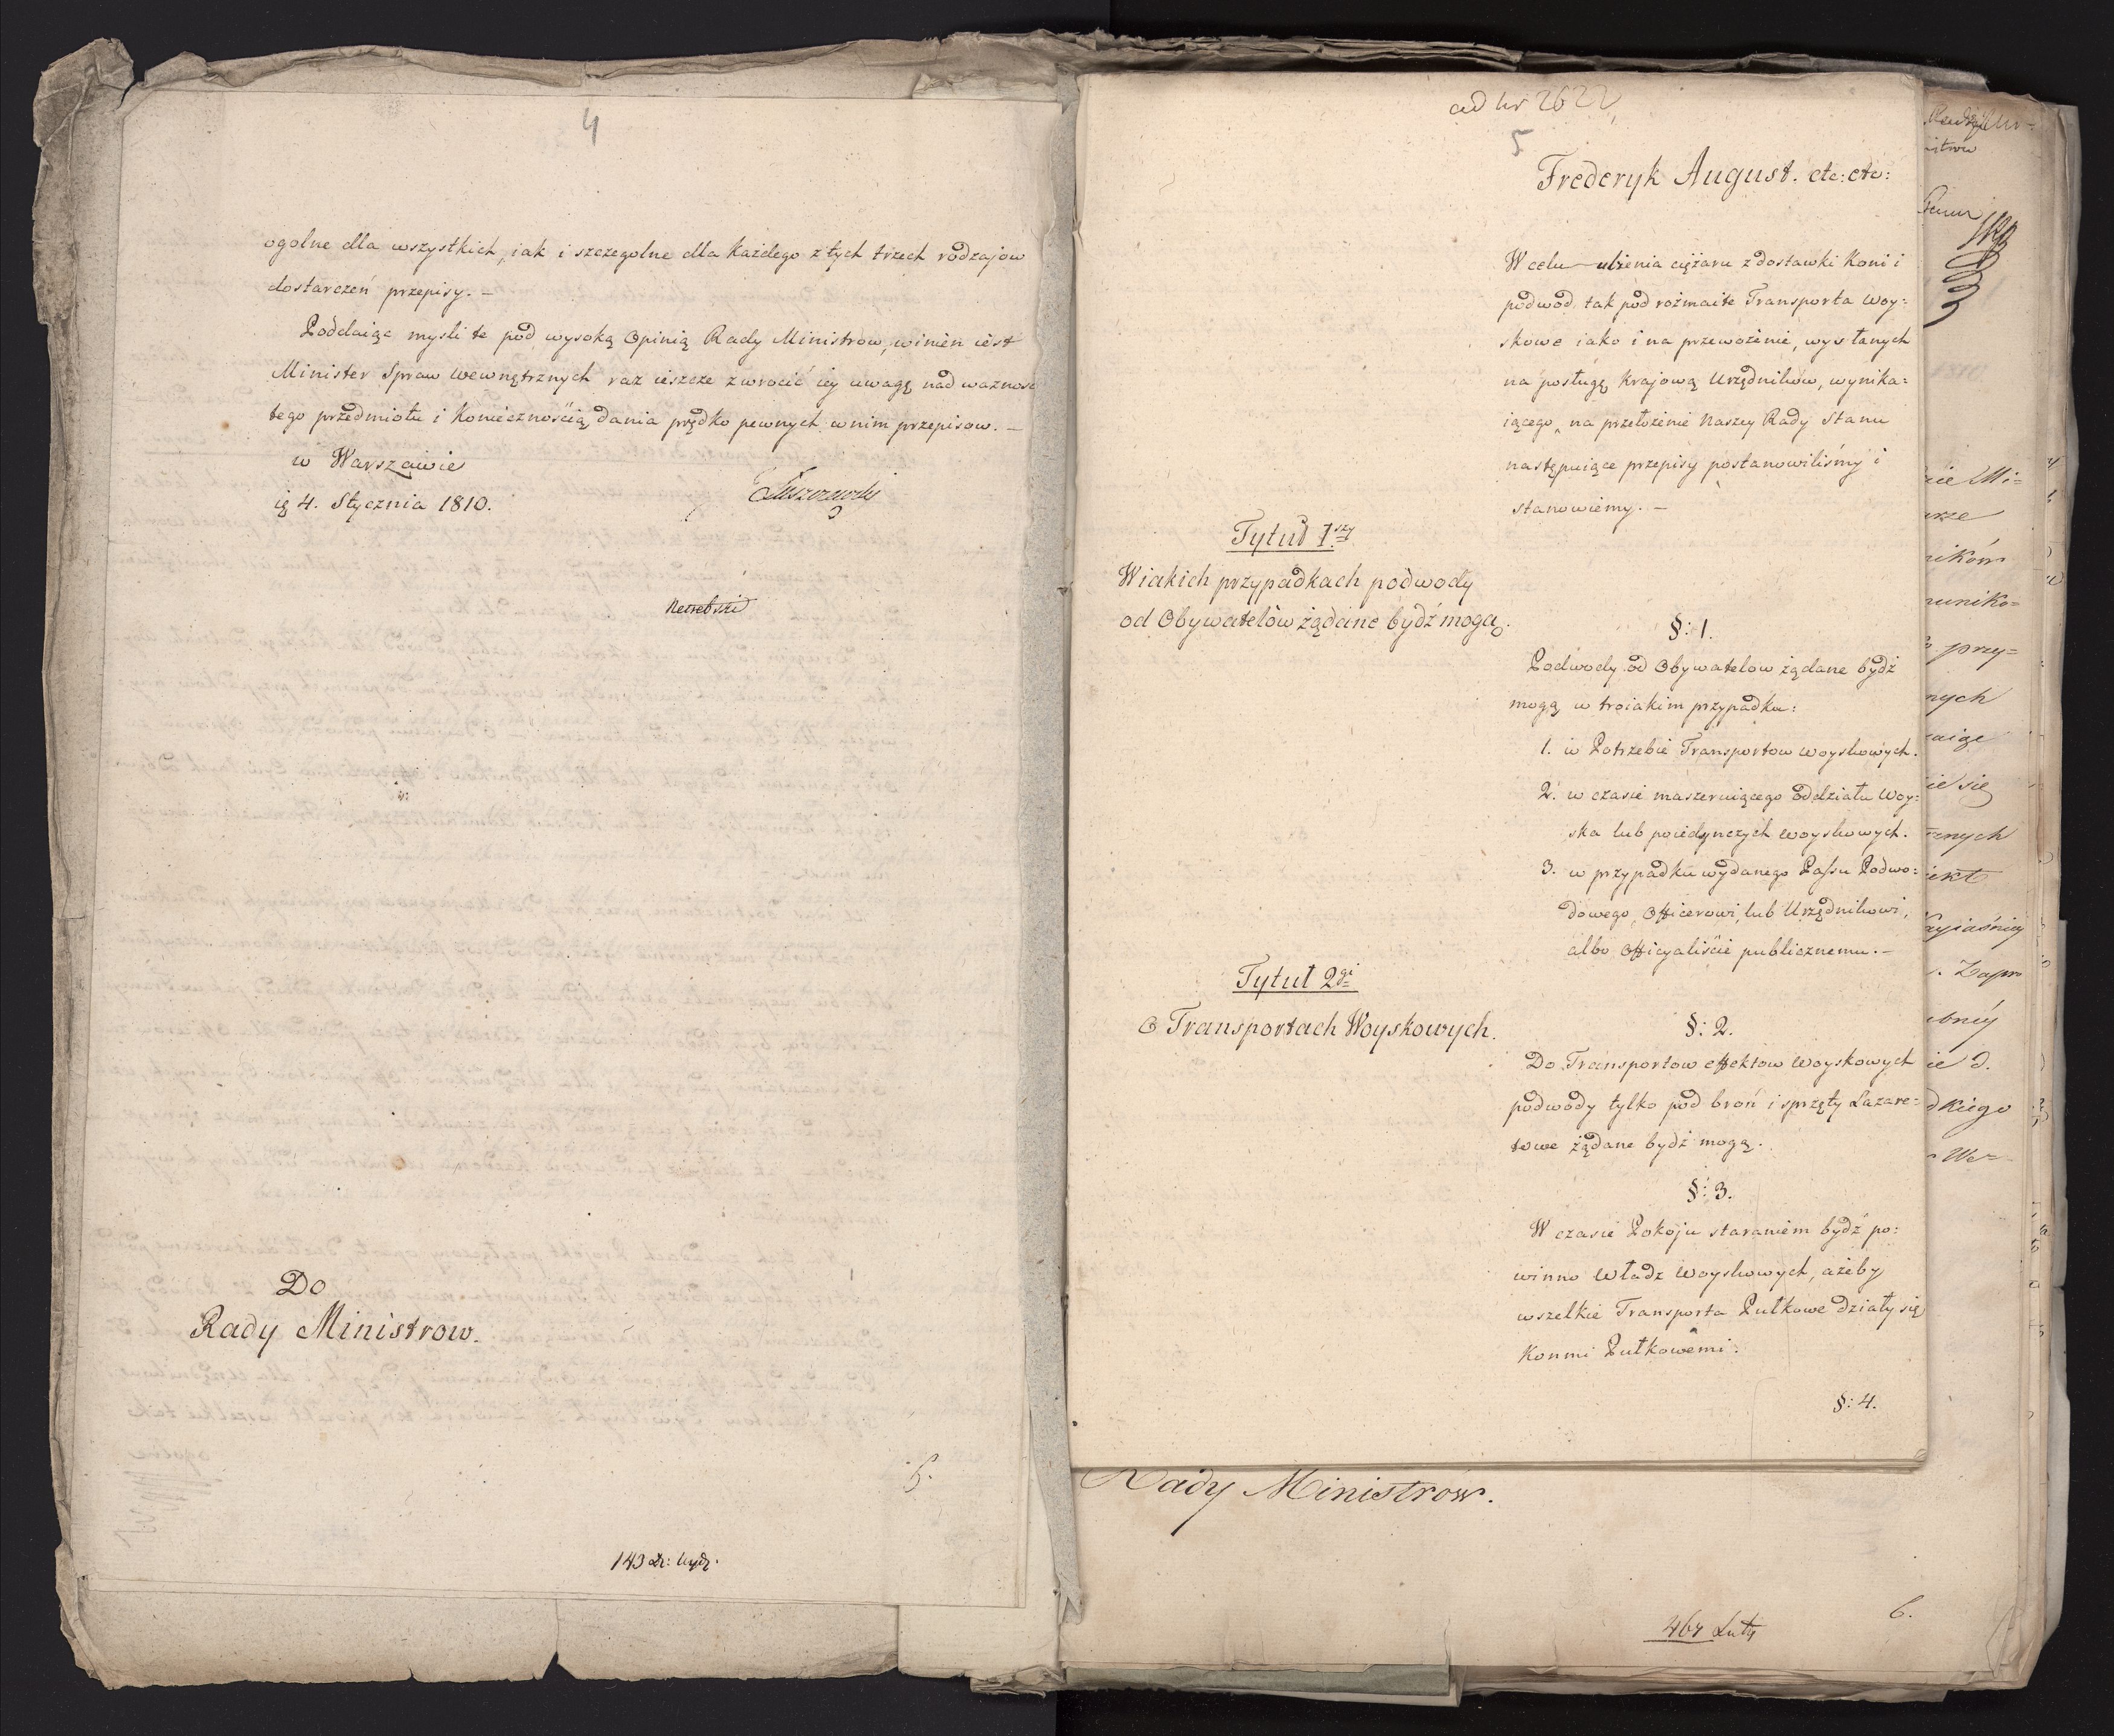 4
ogolne dla wszystkich, iak i szczegolne dla każdego z tych trzech rodzaiow
dostarczeń przepisy. –
Poddaiąc mysli te pod wysoką Opinią Rady Ministrow, winien iest
Minister Spraw Wewnętrznych raz ieszcze zwrocić iey uwagę nad ważnośc
tego przedmiotu i koniecznością dania prędko pewnych w nim przepisow. –
w Warszawie
4. Stycznia 1810.
Łuszczewski
Do
Rady Ministrow.
143
ad Nr 2622
5
Frederyk August. etc: etc:
W celu ulżenia ciężaru z dostawki Koni i
podwod tak pod rozmaite Transporta Woy:
skowe iako i na przewożenie, wysłanych
na posługę Krajową Urzędnikow, wynika:
iącego, na przełożenie Naszey Rady Stanu
następuiące przepisy postanowiliśmy i
stanowiemy. –
Tytuł 1.szy
W iakich przypadkach podwody
od Obywatelów żądane bydź mogą.
§: 1.
Podwody od Obywatelow żądane bydź
mogą w troiakim przypadku:
1. w Potrzebie Transportow woyskowych.
2. w czasie maszeruiącego Oddziału Woy:
ska lub poiedynczych woyskowych.
3. w przypadku wydanego Passu Podwo:
dowego, Officerowi, lub Urzędnikowi,
albo Officyaliście publicznemu. –
Tytuł 2gi
O Transportach Woyskowych.
§: 2.
Do Transportow effektow Woyskowych
podwody tylko pod broń i sprzęty Lazare:
towe żądane bydź mogą.
§: 3.
W czasie Pokoju staraniem bydź po:
winno Władz Woyskowych, ażeby
wszelkie Transporta Pułkowe działy się
Konmi Pułkowemi.
§: 4.
Rady Ministrów.
6.